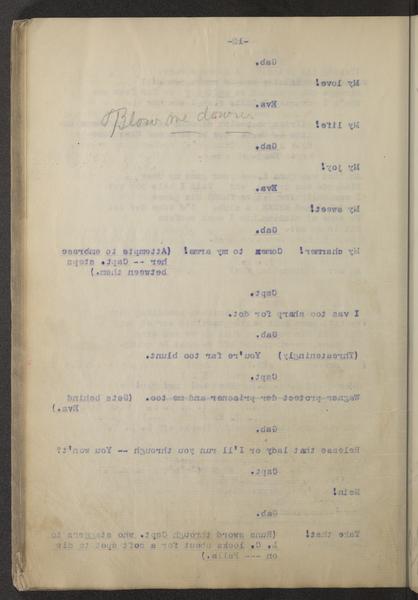 -12-
Gab.
My love!
Eva.
Blow me down
My life!
Gab.
My joy!
Eva.
My sweet!
Gab.
My charmer! Comex to my arms! (Attempts to embrase
her -- Capt. steps
between them.)
Capt.
I was too sharp for dot.
Gab.
(Threateningly) You're far too blunt.
Capt.
Wagner protect der prisoner and me too. (Gets behind
Eva.)
Gab.
Release that lady or I'll run you through -- You won't?
Capt.
Nein!
Gab.
Take that! (Runs sword through Capt. who staggers to
L. C. looks about for a soft spot to die
on --- Falls.)